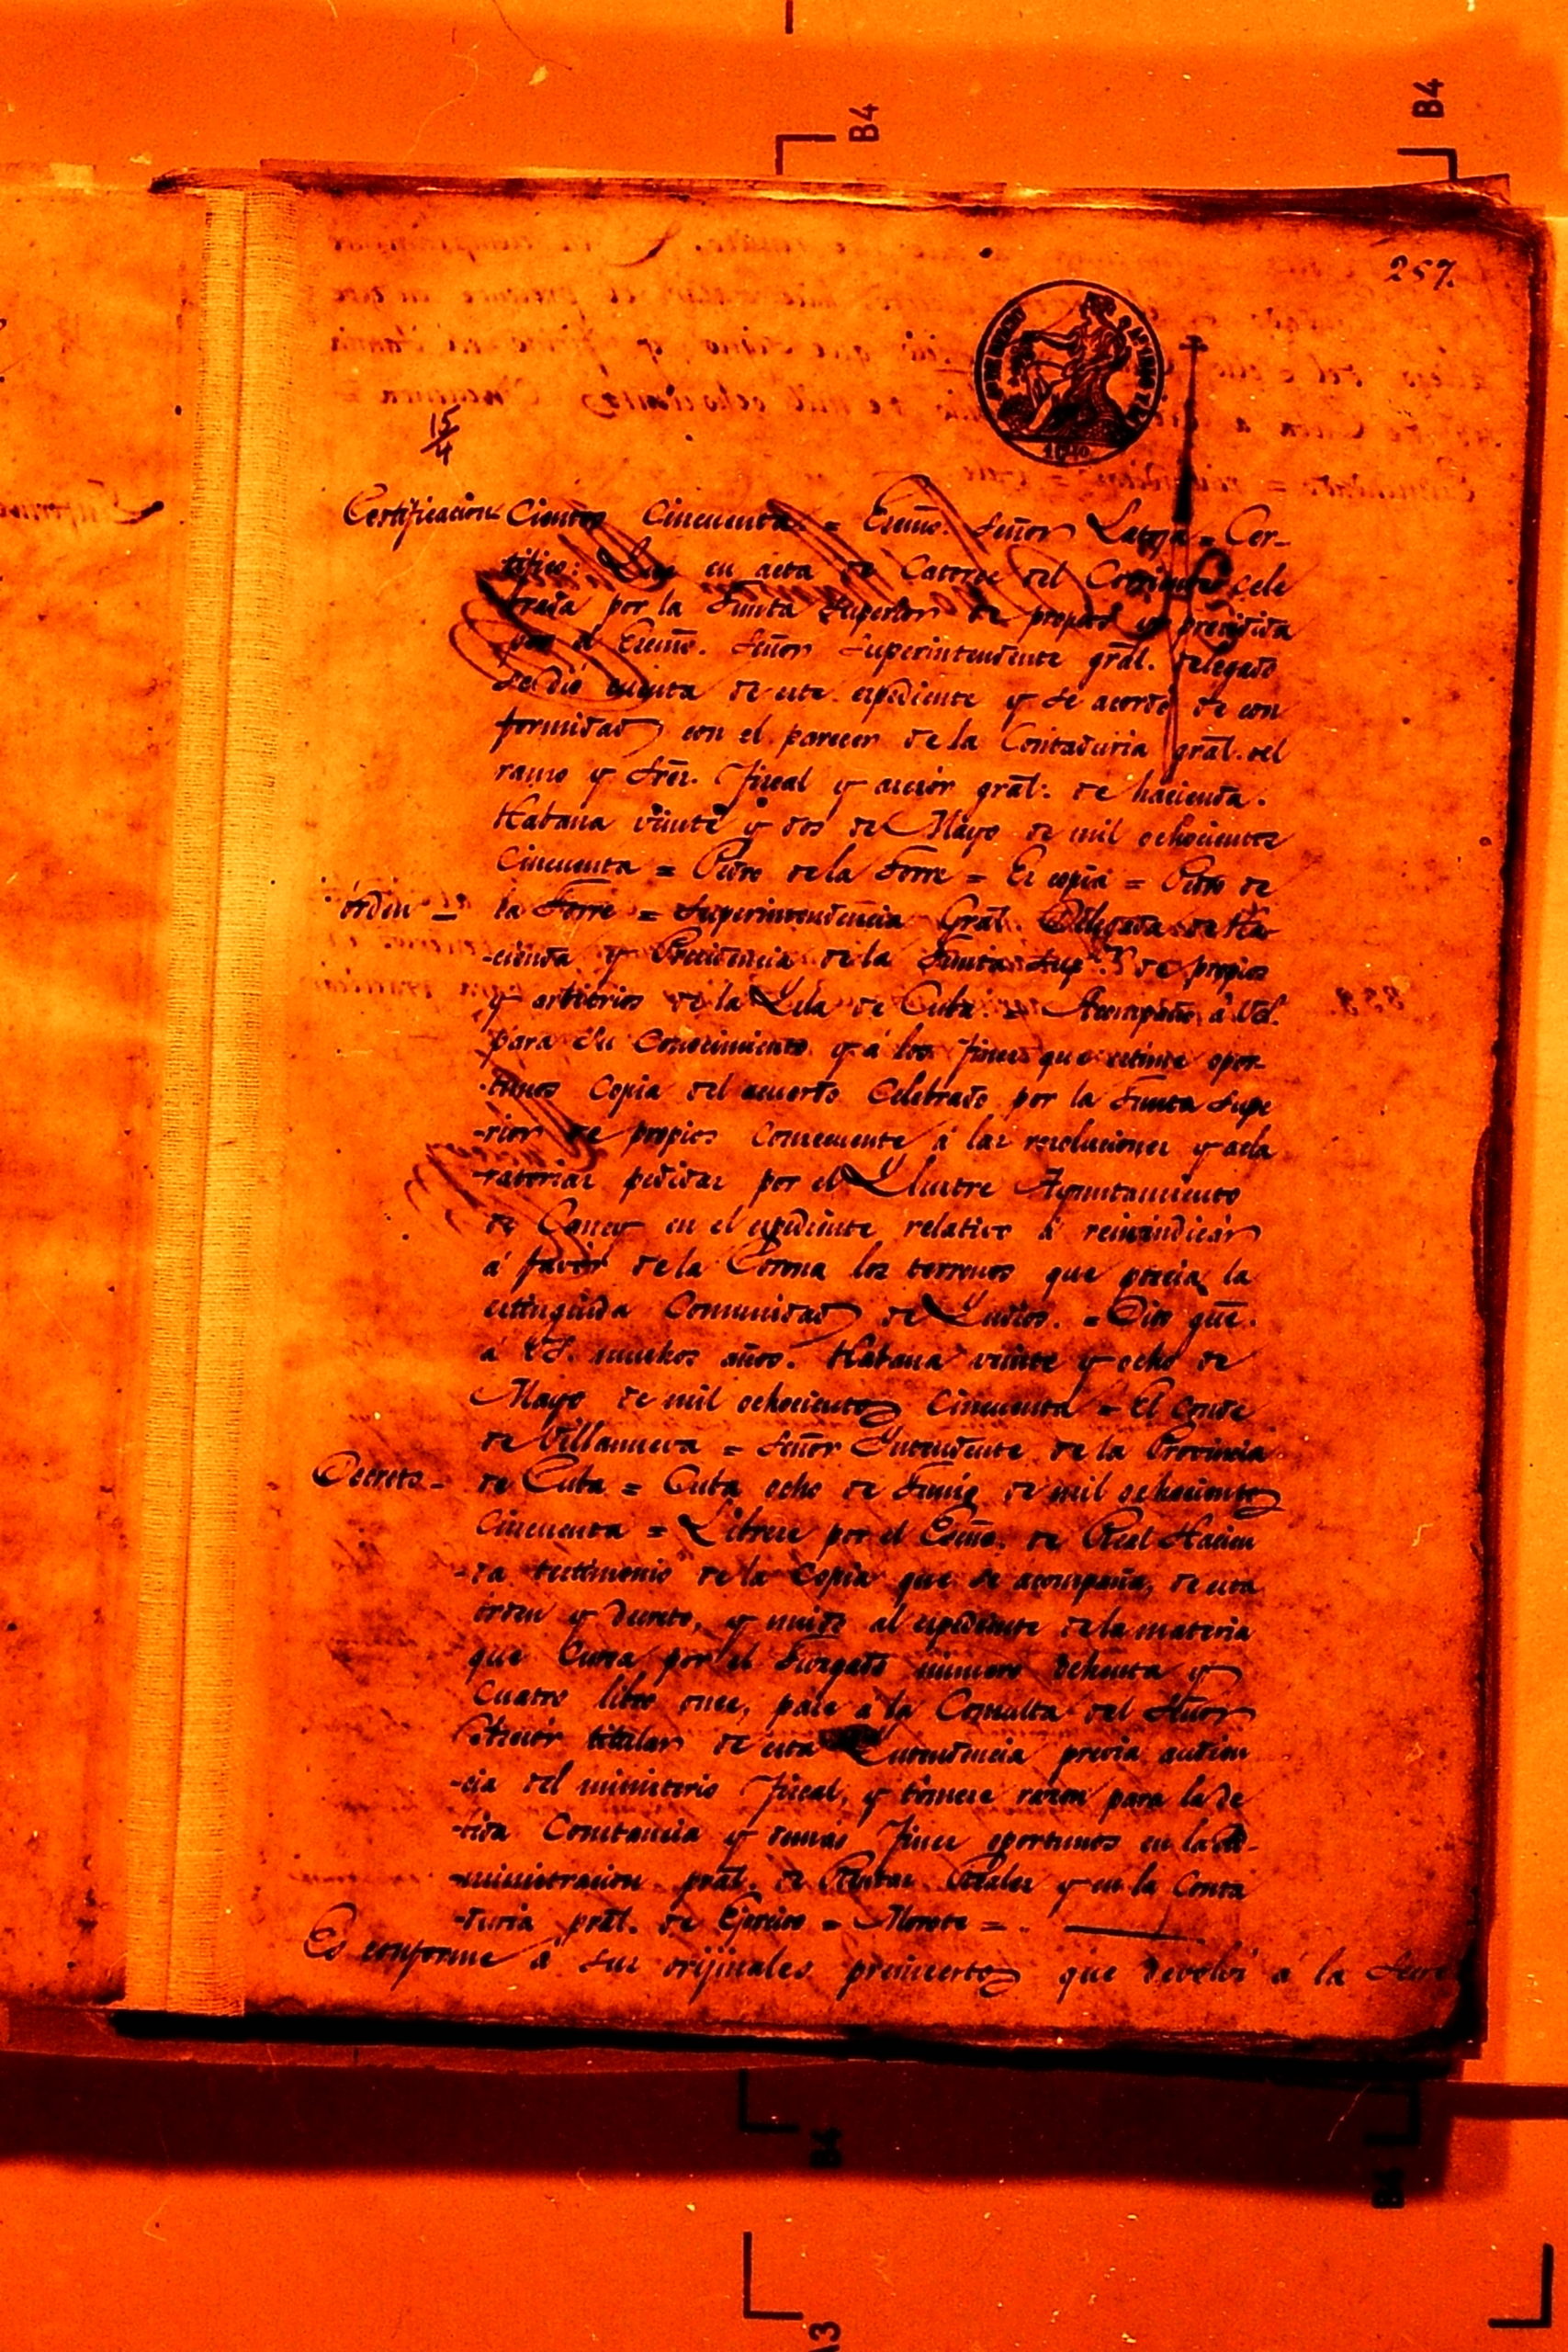 B4
B4
257.
15/4
Certificacion
Cientos Cincuenta = Escmo. Señor = Cer-
tifico: Que en acta de Catorce del Corriente cele
brada por la Junta Superior de propios y precidida
por el Escmo. Señor Superintendente gral. delegado
se dió cuenta de este espediente y se acordó de con
formidad con el parecer de la Contaduria gral. del
ramo y Sres. Fiscal y asesor gral. de hacienda.
Habana veinte y dos de Mayo de mil ochocientos
Cincuenta = Pedro de la Torre = Es copia = Pedro de
órden = la Torre = Superintendencia Gral. Delegada de Ha
-cienda y Precidencia de la Junta Supr. de propios
y arbitrios de la Isla de Cuba = Acompaño á VS.
para su Conocimiento y á los fines que estime opor-
-tunos Copia del acuerdo Celebrado por la Junta Supe
-rior de propios concerniente á las resoluciones y acla
-ratorias pedidas por el Illustre Ayuntamiento
de Caney en el espediente relativo á reivindicar
á favor de la Corona los terrenos que poceia la
estinguida Comunidad de Indios. = Dios gue.
á VS. muchos años. Habana veinte y ocho de
Mayo de mil ochocientos Cincuenta = El Conde
de Villanueva = Señor Intendente de la Provincia
Decreto = de Cuba = Cuba ocho de Junio de mil ochocientos
Cincuenta = Librese por el Escmo. de Real Hacien
-da testimonio de la Copia que se acompaña, de esta
órden y decreto, y unido al espediente de la materia
que Cursa por el Juzgado número ochenta y
Cuatro libro once, pase á la Consulta del Señor
Asesor titular de esta Intendencia previa audien
-cia del ministerio Fiscal, y tómese razon para la de
-bida Constancia y demas fines oportunos en la Ad-
-ministracion pral. de Rentas Reales y en la Conta
-duria pral. de Ejercito = Morote =
Es conforme á sus orijinales proincertos que devolví á la Secre
B4
B4
A3